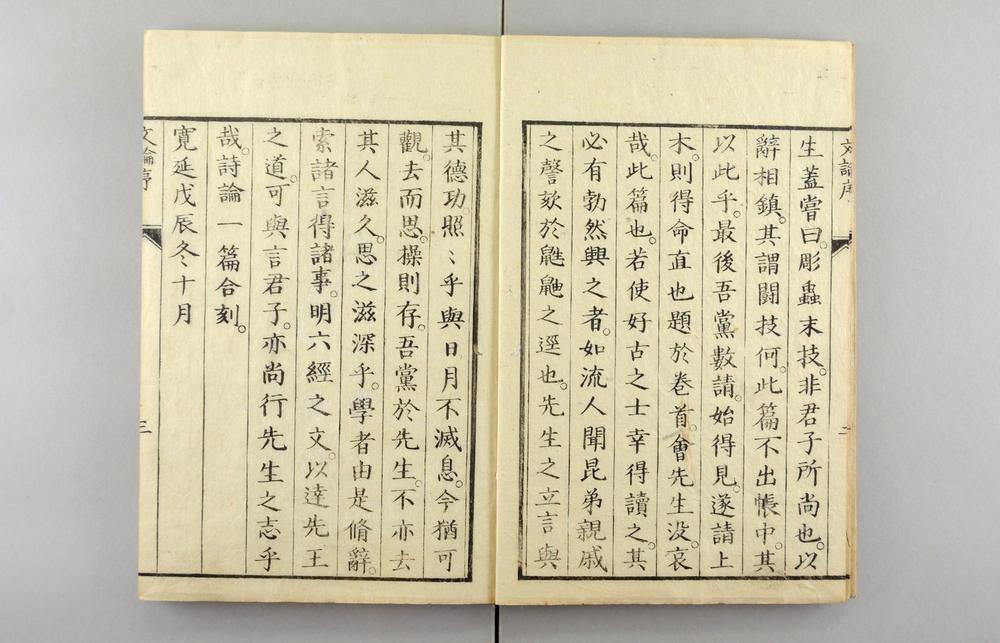 文論序
生蓋嘗曰。彫蟲末技。非君子所尚也。以
辭相鎮。其謂鬪技何。此篇不出帳中。其
以此乎。最後吾黨數請。始得見。遂請上
木。則得命直也題於卷首。會先生没。哀
哉。此篇也。若使好古之士幸得讀之。其
必有勃然興之者。如流人聞昆弟親戚
之謦欬於鼪鼬之逕也。先生之立言與
其德功。照〻乎與日月不滅息。今猶可
觀。去而思。操則存。吾黨於先生。不亦去
其人滋久。思之滋深乎。學者由是脩辭。
索諸言得諸事。明六經之文。以達先王
之道。可與言君子。亦尚行先生之志乎
哉。詩論一篇合刻。
寬延戊辰冬十月
文論序
三